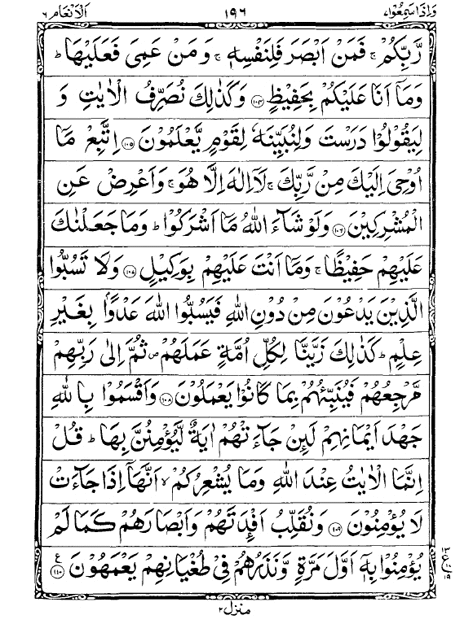 وَاِذَاسَمِعُوْا ٧ ١٩٦ اَلْاَنْعَام ٦
رَّبِّكُمْ ۚ فَمَنْ اَبْصَرَ فَلِنَفْسِهٖ ۚ وَمَنْ عَمِىَ فَعَلَيْهَا ؕ
وَمَاۤ اَنَا عَلَيْكُمْ بِحَفِيْظٍ ﴿۱۰۴﴾ وَكَذٰلِكَ نُصَرِّفُ الْاٰيٰتِ وَ
لِيَقُوْلُوْا دَرَسْتَ وَلِنُبَيِّنَهٗ لِقَوْمٍ يَّعْلَمُوْنَ ﴿۱۰۵﴾ اِتَّبِعْ مَاۤ
اُوْحِىَ اِلَيْكَ مِنْ رَّبِّكَ ۚ لَاۤ اِلٰهَ اِلَّا هُوَ ۚ وَاَعْرِضْ عَنِ
الْمُشْرِكِيْنَ ﴿۱۰۶﴾ وَلَوْ شَآءَ اللّٰهُ مَاۤ اَشْرَكُوْا ؕ وَمَا جَعَلْنٰكَ
عَلَيْهِمْ حَفِيْظًا ۚ وَمَاۤ اَنْتَ عَلَيْهِمْ بِوَكِيْلٍ ﴿۱۰۷﴾ وَلَا تَسُبُّوا
الَّذِيْنَ يَدْعُوْنَ مِنْ دُوْنِ اللّٰهِ فَيَسُبُّوا اللّٰهَ عَدْوًۢا بِغَيْرِ
عِلْمٍ ؕ كَذٰلِكَ زَيَّنَّا لِكُلِّ اُمَّةٍ عَمَلَهُمْ ۪ ثُمَّ اِلٰى رَبِّهِمْ
مَّرْجِعُهُمْ فَيُنَبِّئُهُمْ بِمَا كَانُوْا يَعْمَلُوْنَ ﴿۱۰۸﴾ وَاَقْسَمُوْا بِاللّٰهِ
جَهْدَ اَيْمَانِهِمْ لَئِنْ جَآءَتْهُمْ اٰيَةٌ لَّيُؤْمِنُنَّ بِهَا ؕ قُلْ
اِنَّمَا الْاٰيٰتُ عِنْدَ اللّٰهِ وَمَا يُشْعِرُكُمْ ۙ اَنَّهَاۤ اِذَا جَآءَتْ
لَا يُؤْمِنُوْنَ ﴿۱۰۹﴾ وَنُقَلِّبُ اَفْـِٕدَتَهُمْ وَاَبْصَارَهُمْ كَمَا لَمْ
يُؤْمِنُوْا بِهٖۤ اَوَّلَ مَرَّةٍ وَّنَذَرُهُمْ فِىْ طُغْيَانِهِمْ يَعْمَهُوْنَ ﴿۱۱۰﴾
منزل ٢